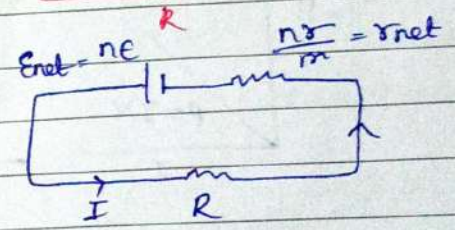 R
Ɛnet = nƐ
nr/m = rnet
I R